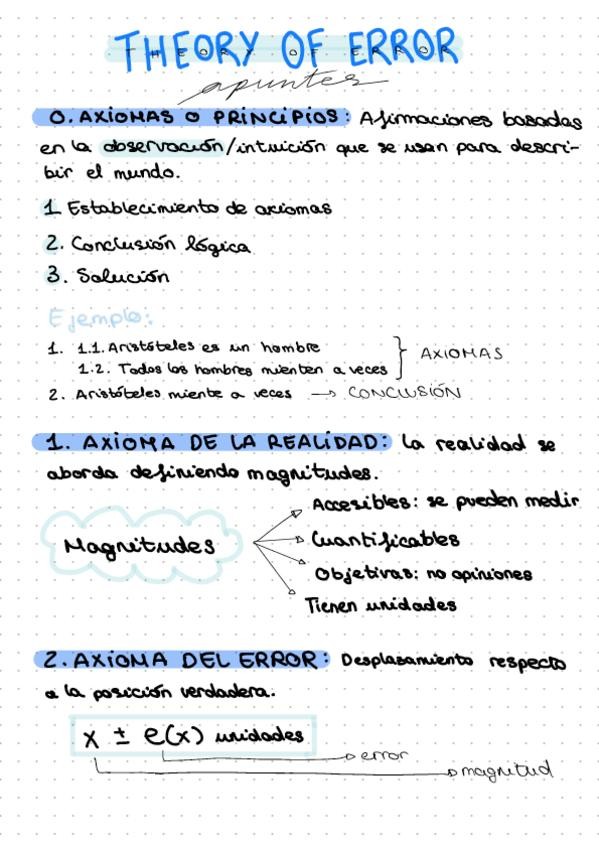 THEORY OF ERROR
apuntes
0. AXIOMAS O PRINCIPIOS: Afirmaciones basadas
en la observación/intuición que se usan para descri-
bir el mundo.
1 Establecimiento de axiomas
2. Conclusión lógica
3. Solución
Ejemplo:
1. 1.1. Aristóteles es un hombre
1.2. Todos los hombres mienten a veces
AXIOMAS
2. Aristóteles miente a veces → CONCLUSIÓN
1. AXIOMA DE LA REALIDAD: La realidad se
aborda definiendo magnitudes.
Accesibles: se pueden medir
Magnitudes
Cuantificables
Objetivas: no opiniones
Tienen unidades
2. AXIOMA DEL ERROR: Desplasamiento respecto
a la posición verdadera.
x ± e(x) unidades
error
magnitud